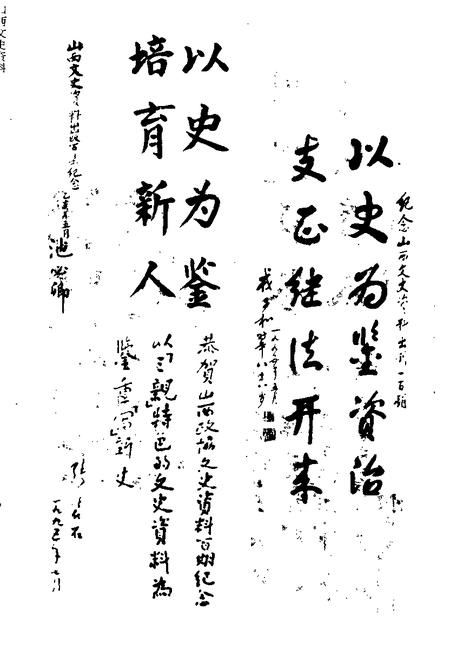 纪念山西文史资料出刊一百期
以史为鉴资治
支正继往开来
一九九五年五月
以史为鉴
培育新人
山西文史资料出版百期纪念
乙亥年五月
恭贺山西政协文史资料百期纪念
以「三亲」特色的文史资料为
鉴重「写」新史
一九九五年七月
山西文史资料